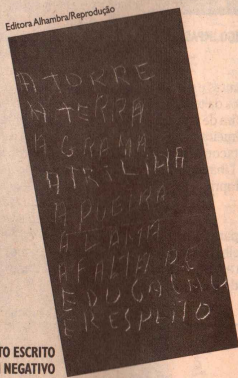 Editora Alhambra/Reprodução
A TORRE
A TERRA
A GRAMA
A TRILHA
A POEIRA
A LAMA
A FALTA DE
EDUCAÇÃO
E RESPEITO
TO ESCRITO
M NEGATIVO